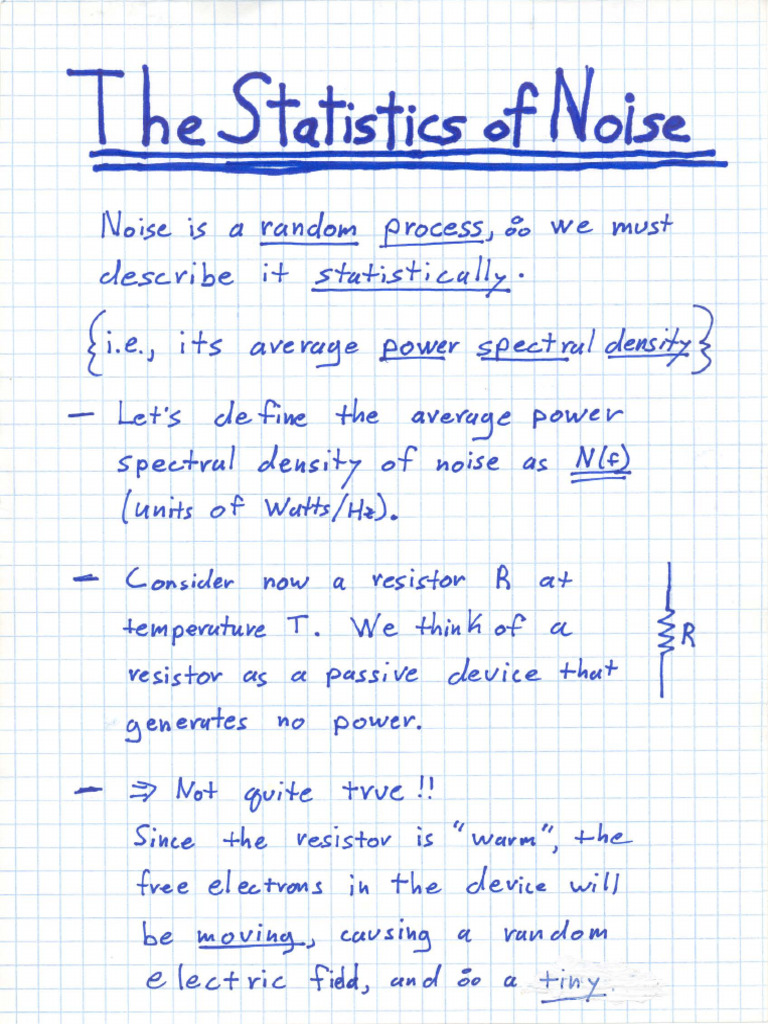 The Statistics of Noise
Noise is a random process, ∴ we must
describe it statistically.
{i.e., its average power spectral density}
— Let's define the average power
spectral density of noise as N(f)
(units of Watts/Hz).
— Consider now a resistor R at
temperature T. We think of a
R
resistor as a passive device that
generates no power.
— ⇒ Not quite true!!
Since the resistor is "warm", the
free electrons in the device will
be moving, causing a random
electric field, and ∴ a tiny